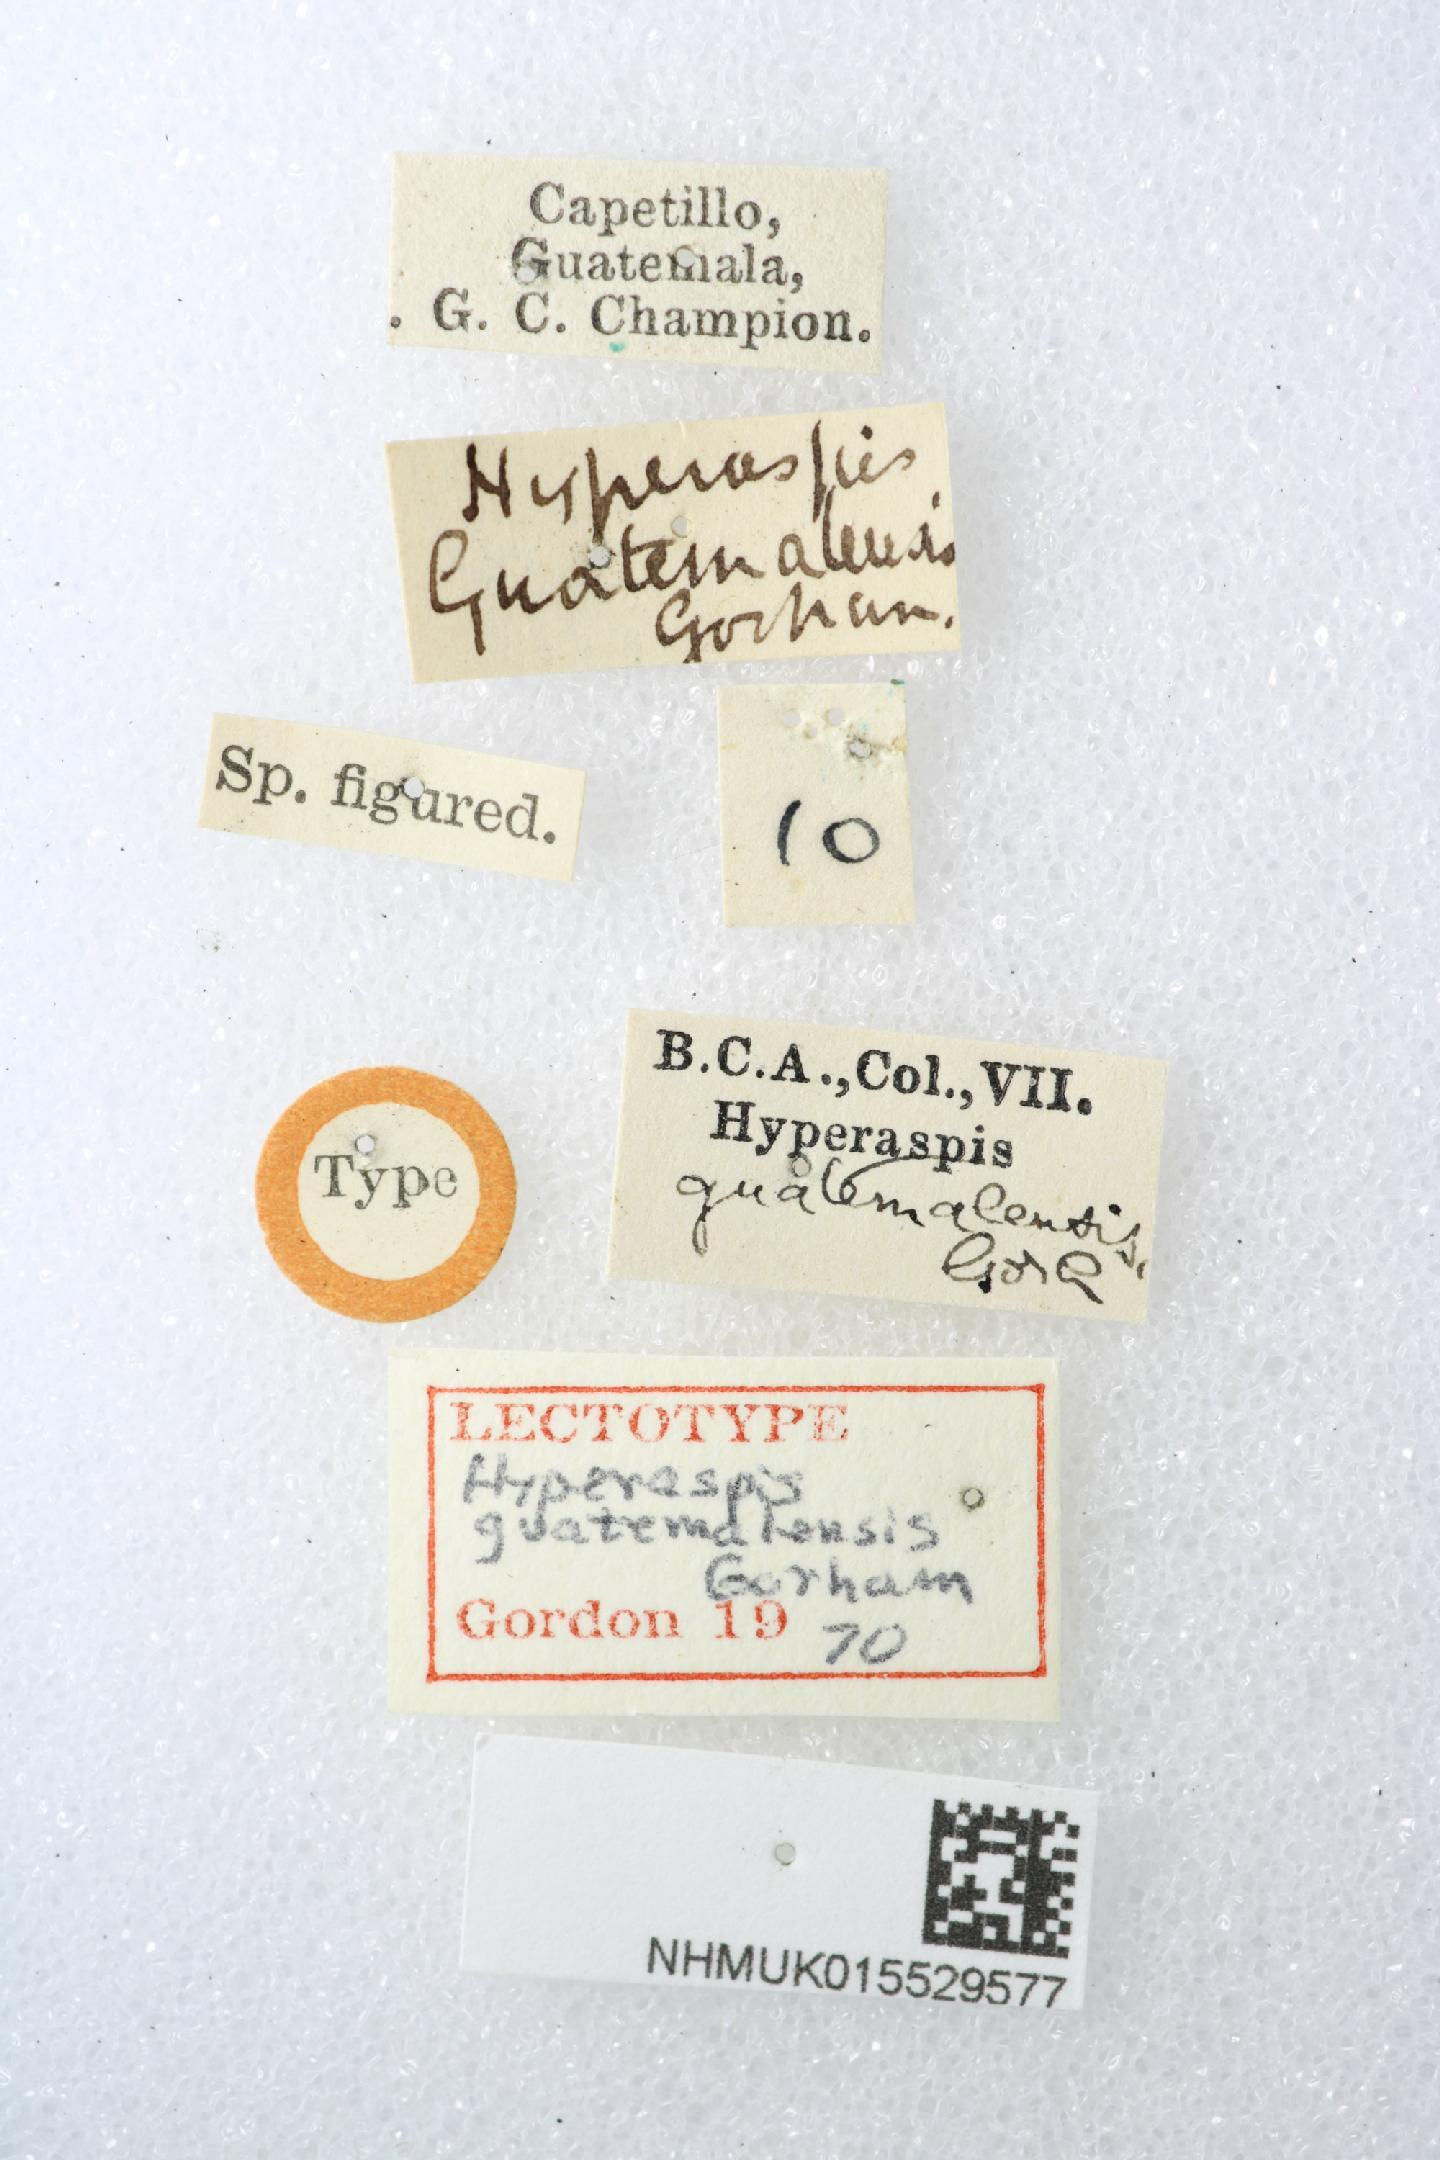 Capetillo,
Guatemala,
. G. C. Champion.
Hyperaspis
Guatemalensis
Gorham.
Sp. figured.
10
Type
B.C.A., Col., VII.
Hyperaspis
guatemalensis,
Gorh
LECTOTYPE
Hyperaspis
guatemalensis
Gorham
Gordon 19 70
NHMUK015529577